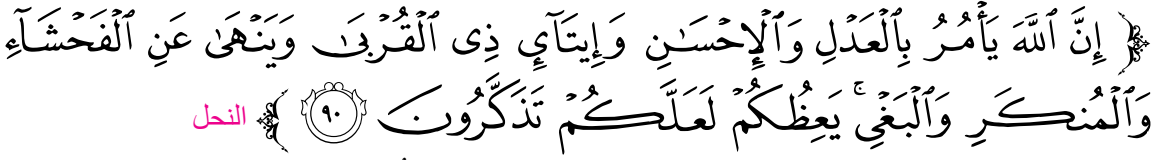 ﴿ إِنَّ ٱللَّهَ يَأۡمُرُ بِٱلۡعَدۡلِ وَٱلۡإِحۡسَٰنِ وَإِيتَآيِٕ ذِي ٱلۡقُرۡبَىٰ وَيَنۡهَىٰ عَنِ ٱلۡفَحۡشَآءِ
وَٱلۡمُنكَرِ وَٱلۡبَغۡيِۚ يَعِظُكُمۡ لَعَلَّكُمۡ تَذَكَّرُونَ ٩٠ ﴾ النحل